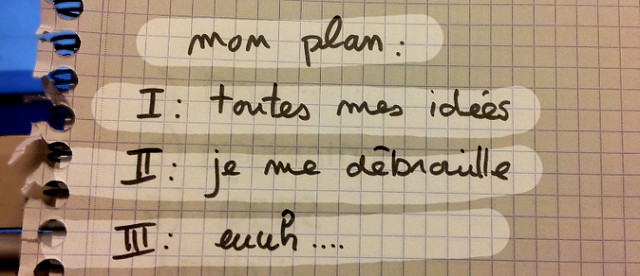 mon plan :
I : toutes mes idées
II : je me débrouille
III : euuh....